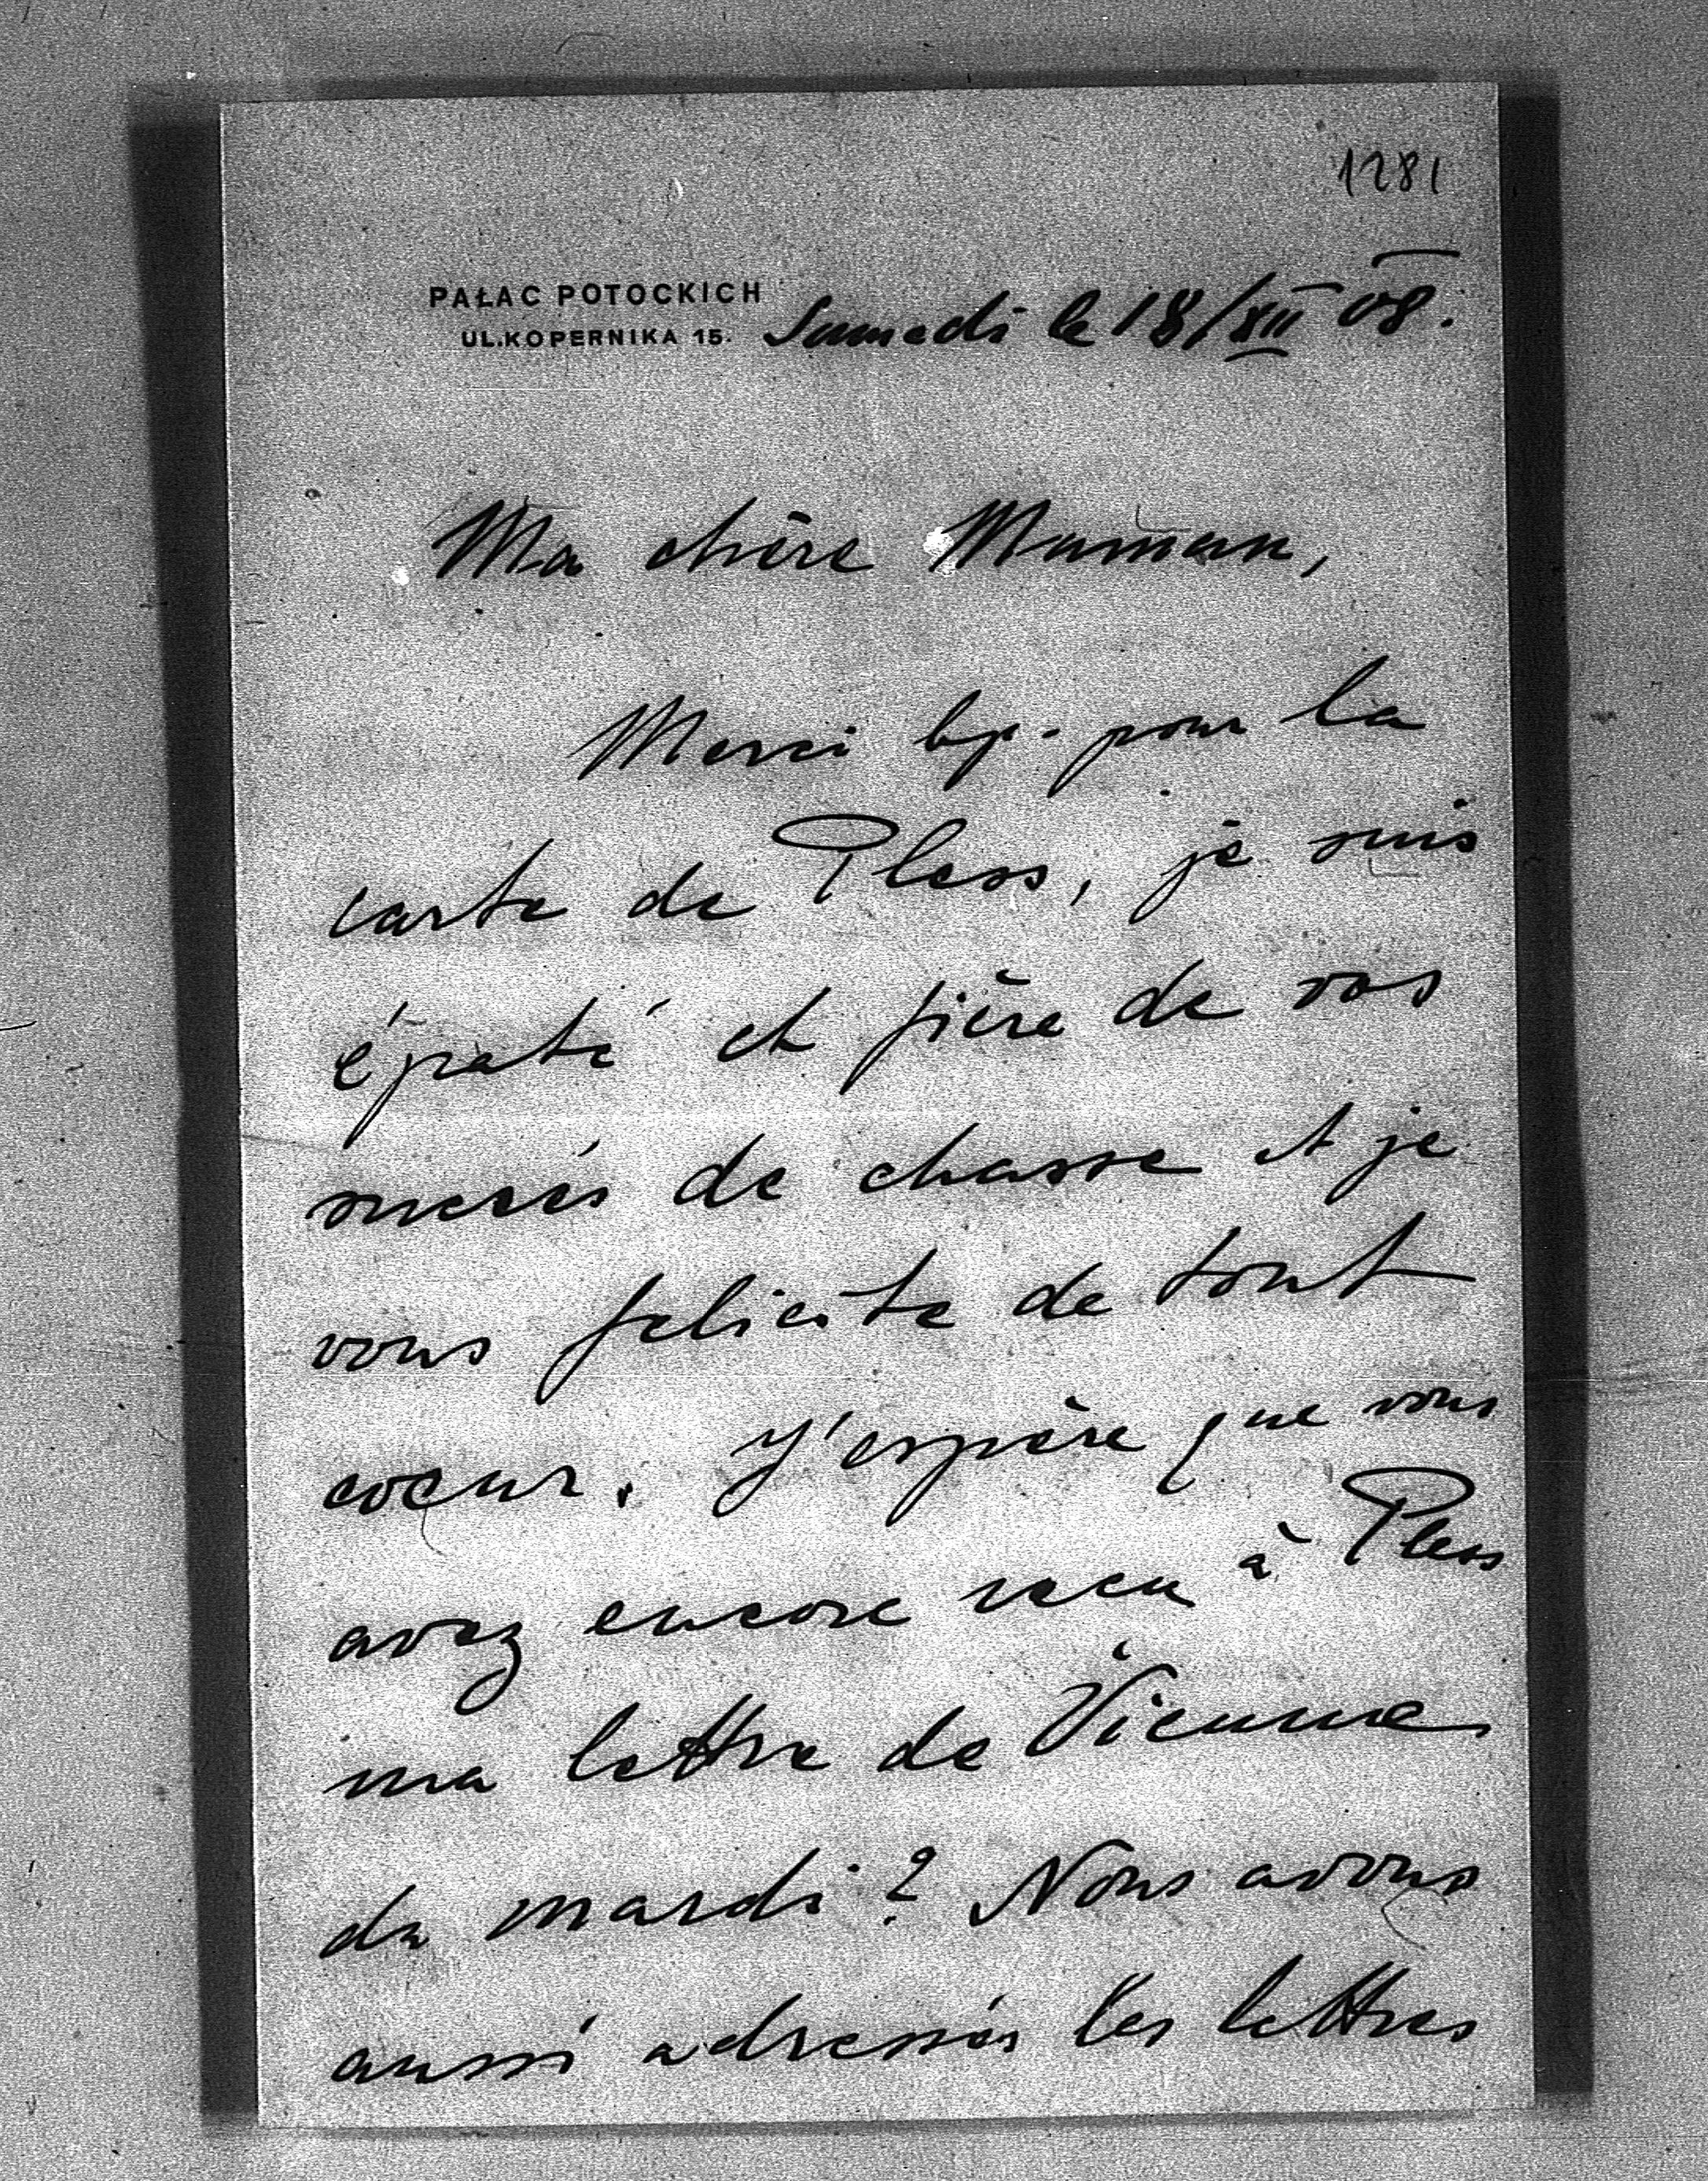 1281
PAŁAC POTOCKICH
UL.KOPERNIKA 15. Samedi le 18/XII 08.
Ma chère Maman,
Merci bp. pour la
carte de Pless, je suis
épaté et fière de vos
succés de chasse et je
vous felicite de tout
coeur. J'espère que vous
avez encore recu à Pless
ma lettre de Vienne
du mardi? Nous avons
aussi adressés les lettres